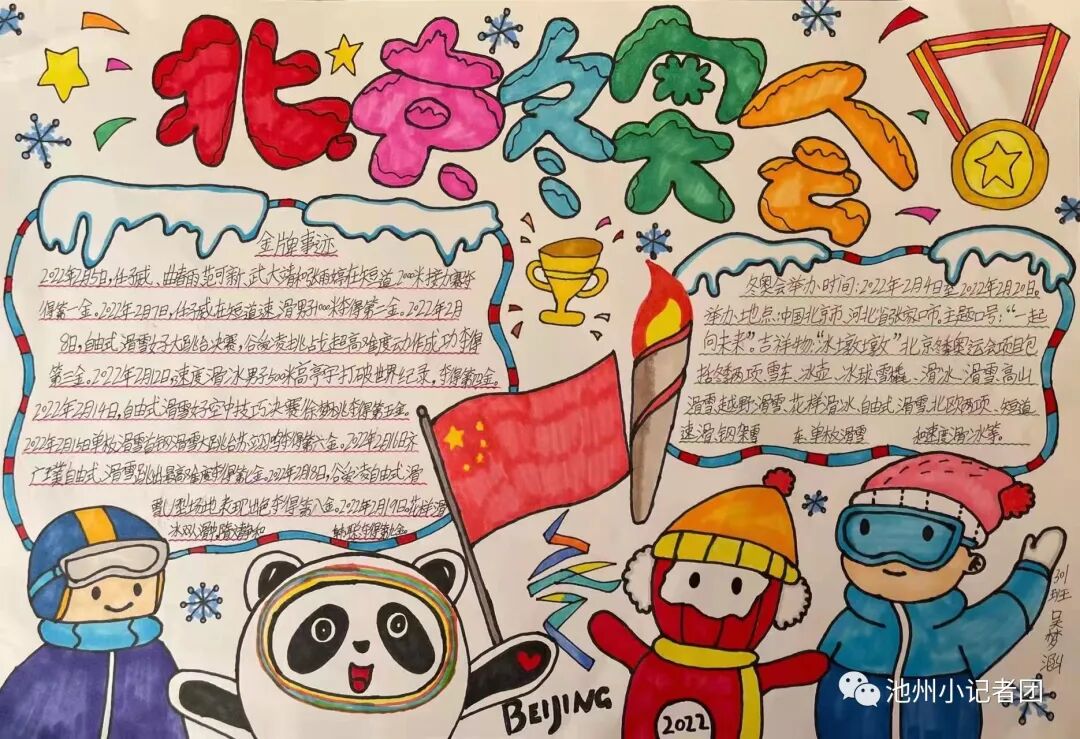 北京冬奥会
金牌事迹
2022年2月5日,任子威、曲春雨、范可新、武大靖和张雨婷在短道2000米接力赛夺
得第一金。2022年2月7日,任子威在短道速滑男子1000米夺得第二金。2022年2月
8日,自由式滑雪女子大跳台决赛,谷爱凌挑战超高难度动作成功夺得
第三金。2022年2月12日,速度滑冰男子500米高亭宇打破世界纪录,夺得第四金。
2022年2月14日,自由式滑雪女子空中技巧决赛徐梦桃夺得第五金。
2022年2月15日单板滑雪男子大跳台苏翊鸣夺得第六金。2022年2月16日齐
广璞自由式滑雪 高难度夺得第七金。2022年2月18日,谷爱凌自由式滑
雪U型场地 夺得第八金。2022年2月19日花样滑
冰双人滑隋文静和 韩聪夺得第九金。
冬奥会举办时间:2022年2月4日至2022年2月20日。
举办地点:中国北京市、河北省张家口市。主题口号:“一起
向未来”。吉祥物:“冰墩墩”北京冬季奥运会项目包
括冬季两项、雪车、冰壶、冰球、雪橇、滑冰、滑雪、高山
滑雪、越野滑雪、花样滑冰、自由式滑雪、北欧两项、短道
速滑、钢架雪 车、单板滑雪 和速度滑冰等。
BEIJING
2022
301班
吴梦涵
池州小记者团